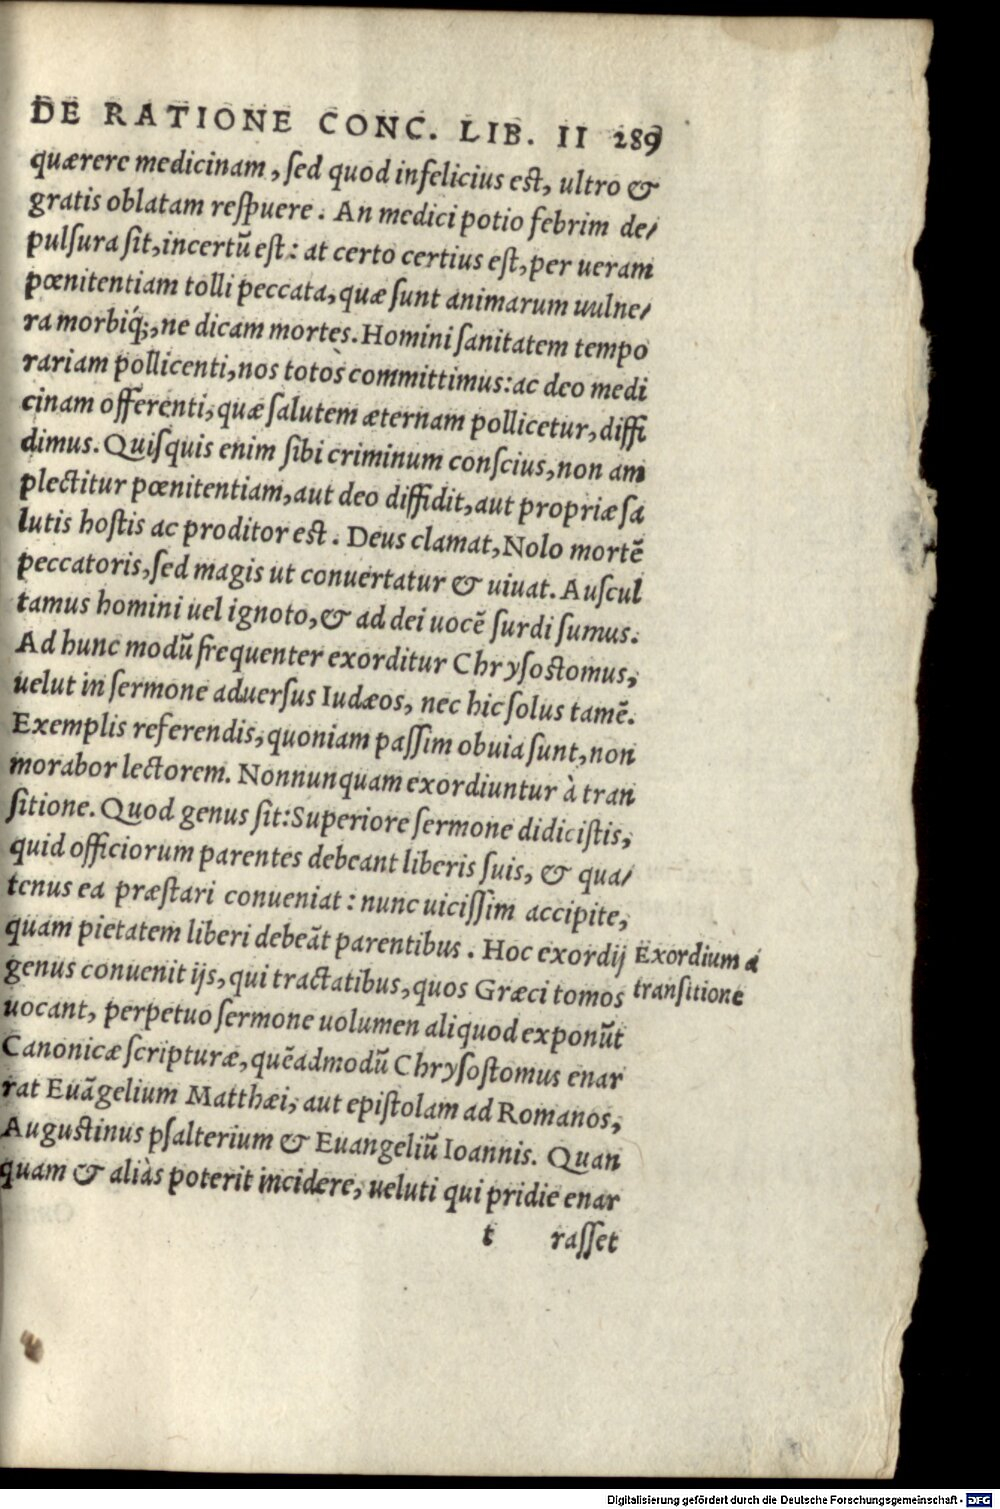 DE RATIONE CONC. LIB. II 289
quærere medicinam, ſed quod infelicius est, ultro &
gratis oblatam reſpuere. An medici potio febrim de/
pulſura ſit, incertũ eſt: at certo certius eſt, per ueram
pœnitentiam tolli peccata, quæ ſunt animarum uulne/
ra morbiq́;, ne dicam mortes. Homini ſanitatem tempo
rariam pollicenti, nos totòs committimus: ac deo medi
cinam offerenti, quæ ſalutem æternam pollicetur, diffi
dimus. Quiſquis enim ſibi criminum conſcius, non am
plectitur pœnitentiam, aut deo diffidit, aut propriæ ſa
lutis hoſtis ac proditor est. Deus clamat, Nolo mortẽ
peccatoris, ſed magis ut conuertatur & uiuat. Auſcul
tamus homini uel ignoto, & ad dei uocẽ ſurdi ſumus.
Ad hunc modũ frequenter exorditur Chryſostomus,
uelut in ſermone aduerſus Iudæos, nec hic ſolus tamẽ.
Exemplis referendis, quoniam paſſim obuia ſunt, non
morabor lectorem. Nonnunquam exordiuntur à tran
ſitione. Quod genus ſit: Superiore ſermone didiciſtis,
quid officiorum parentes debeant liberis ſuis, & qua/
tenus ea præſtari conueniat: nunc uiciſſim accipite,
quam pietatem liberi debeãt parentibus. Hoc exordij
Exordium à
genus conuenit ijs, qui tractatibus, quos Græci tomos
tranſitione
uocant, perpetuo ſermone uolumen aliquod exponũt
Canonicæ ſcripturæ, quẽadmodũ Chryſoſtomus enar
rat Euãgelium Matthæi, aut epiſtolam ad Romanos,
Augustinus pſalterium & Euangeliũ Ioannis. Quan
quam & aliàs poterit incidere, ueluti qui pridie enar
t raſſet
Digitalisierung gefördert durch die Deutsche Forschungsgemeinschaft - DFG